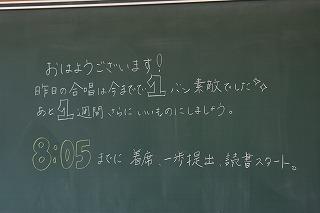 おはようございます!
昨日の合唱は今までで1バン素敵でした✨
あと1週間さらにいいものにしましょう。
8:05までに 着席、一歩提出、読書スタート。